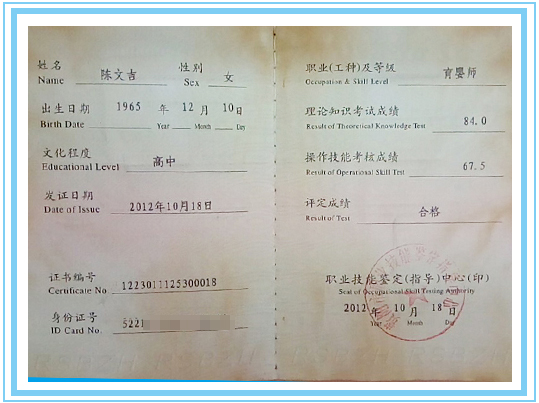 姓名 陈文吉 性别 女
Name Sex
出生日期 1965 年 12 月 10日
Birth Date Year Month Day
文化程度 高中
Educational Level
发证日期
Date of Issue 2012年10月18日
证书编号 1223011125300018
Certificate No
身份证号 5221
ID Card No.
职业(工种)及等级 育婴师
Occupation & Skill Level
理论知识考试成绩 84.0
Result of Theoretical Knowledge Test
操作技能考核成绩 67.5
Result of Operational Skill Test
评定成绩 合格
Result of Test
职业技能鉴定(指导)中心(印)
Seal of Occupational Skill Testing Authority
2012 年 10 月 18 日
Year Month Day